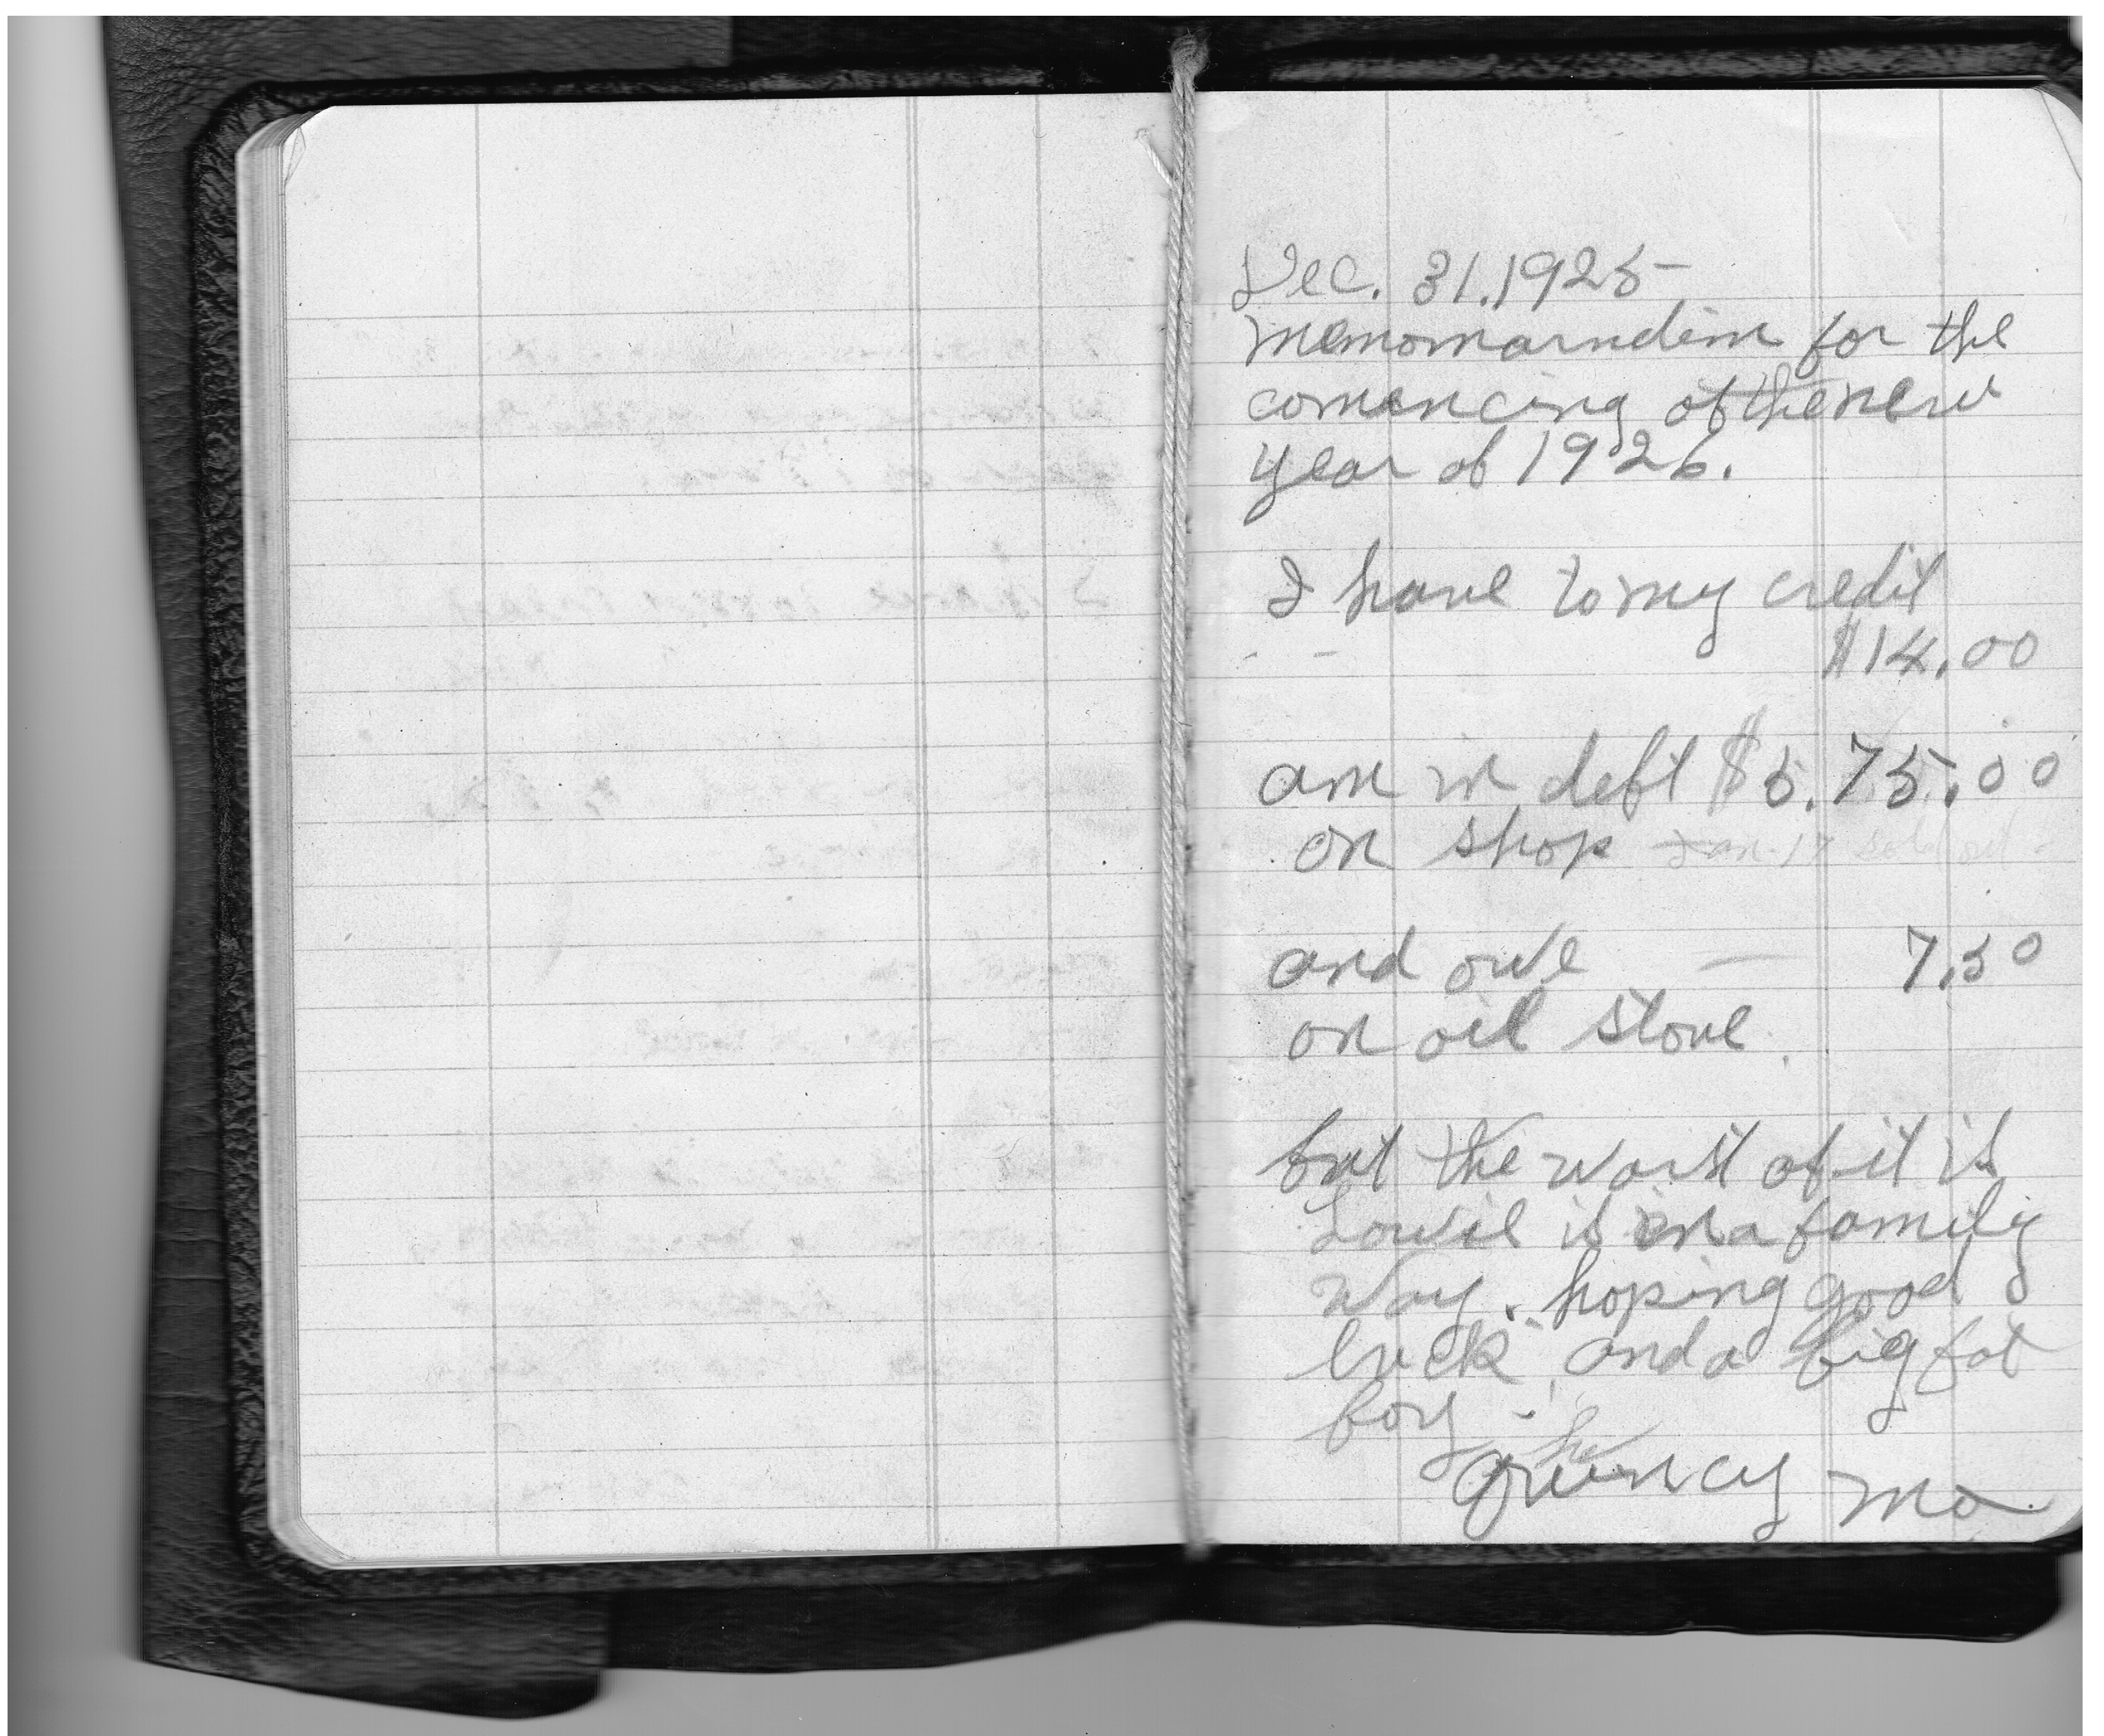 Dec. 31. 1925-
Memomarndim for the
comencing of the new
year of 1926.
I have to my credit
- - $14.00
am in deft $5.75.00
on shop Jan-17 sold out -
and owe — 7.50
on oil stove.
but the worst of it is
Lowie is in a family
way. hoping good
luck and a big fat
boy -
Quincy Mo